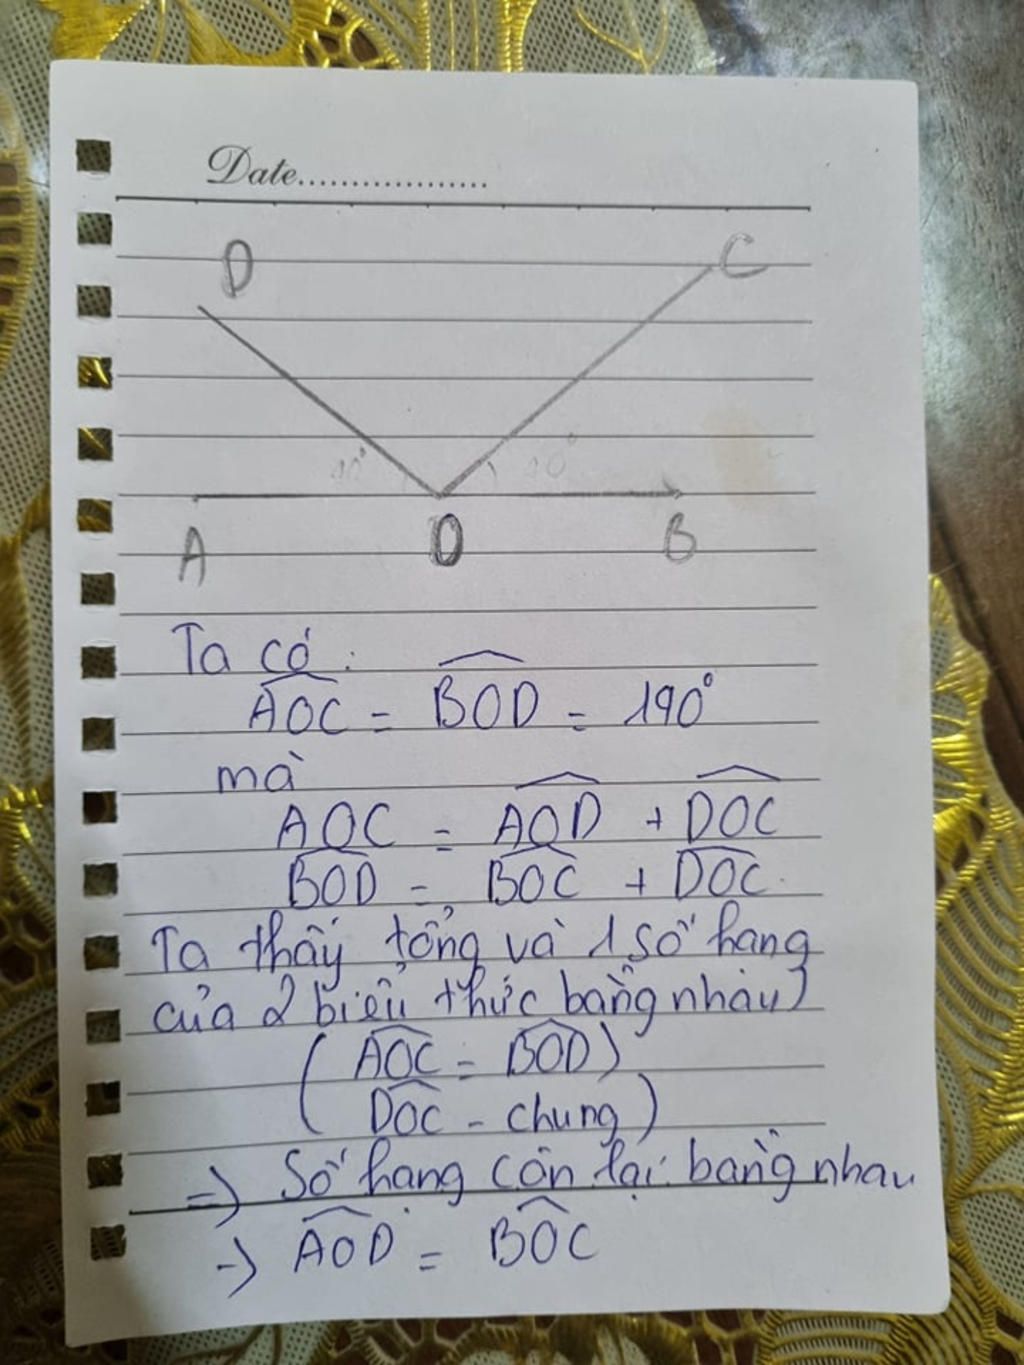 Date..................
D C
40° 40°
A O B
Ta có:
AOC = BOD = 140°
mà
AOC = AOD + DOC
BOD = BOC + DOC.
Ta thấy tổng và 1 số hang
của 2 biểu thức bằng nhau)
( AOC = BOD )
( DOC - chung )
=> Số hang còn lại bằng nhau
-> AOD = BOC